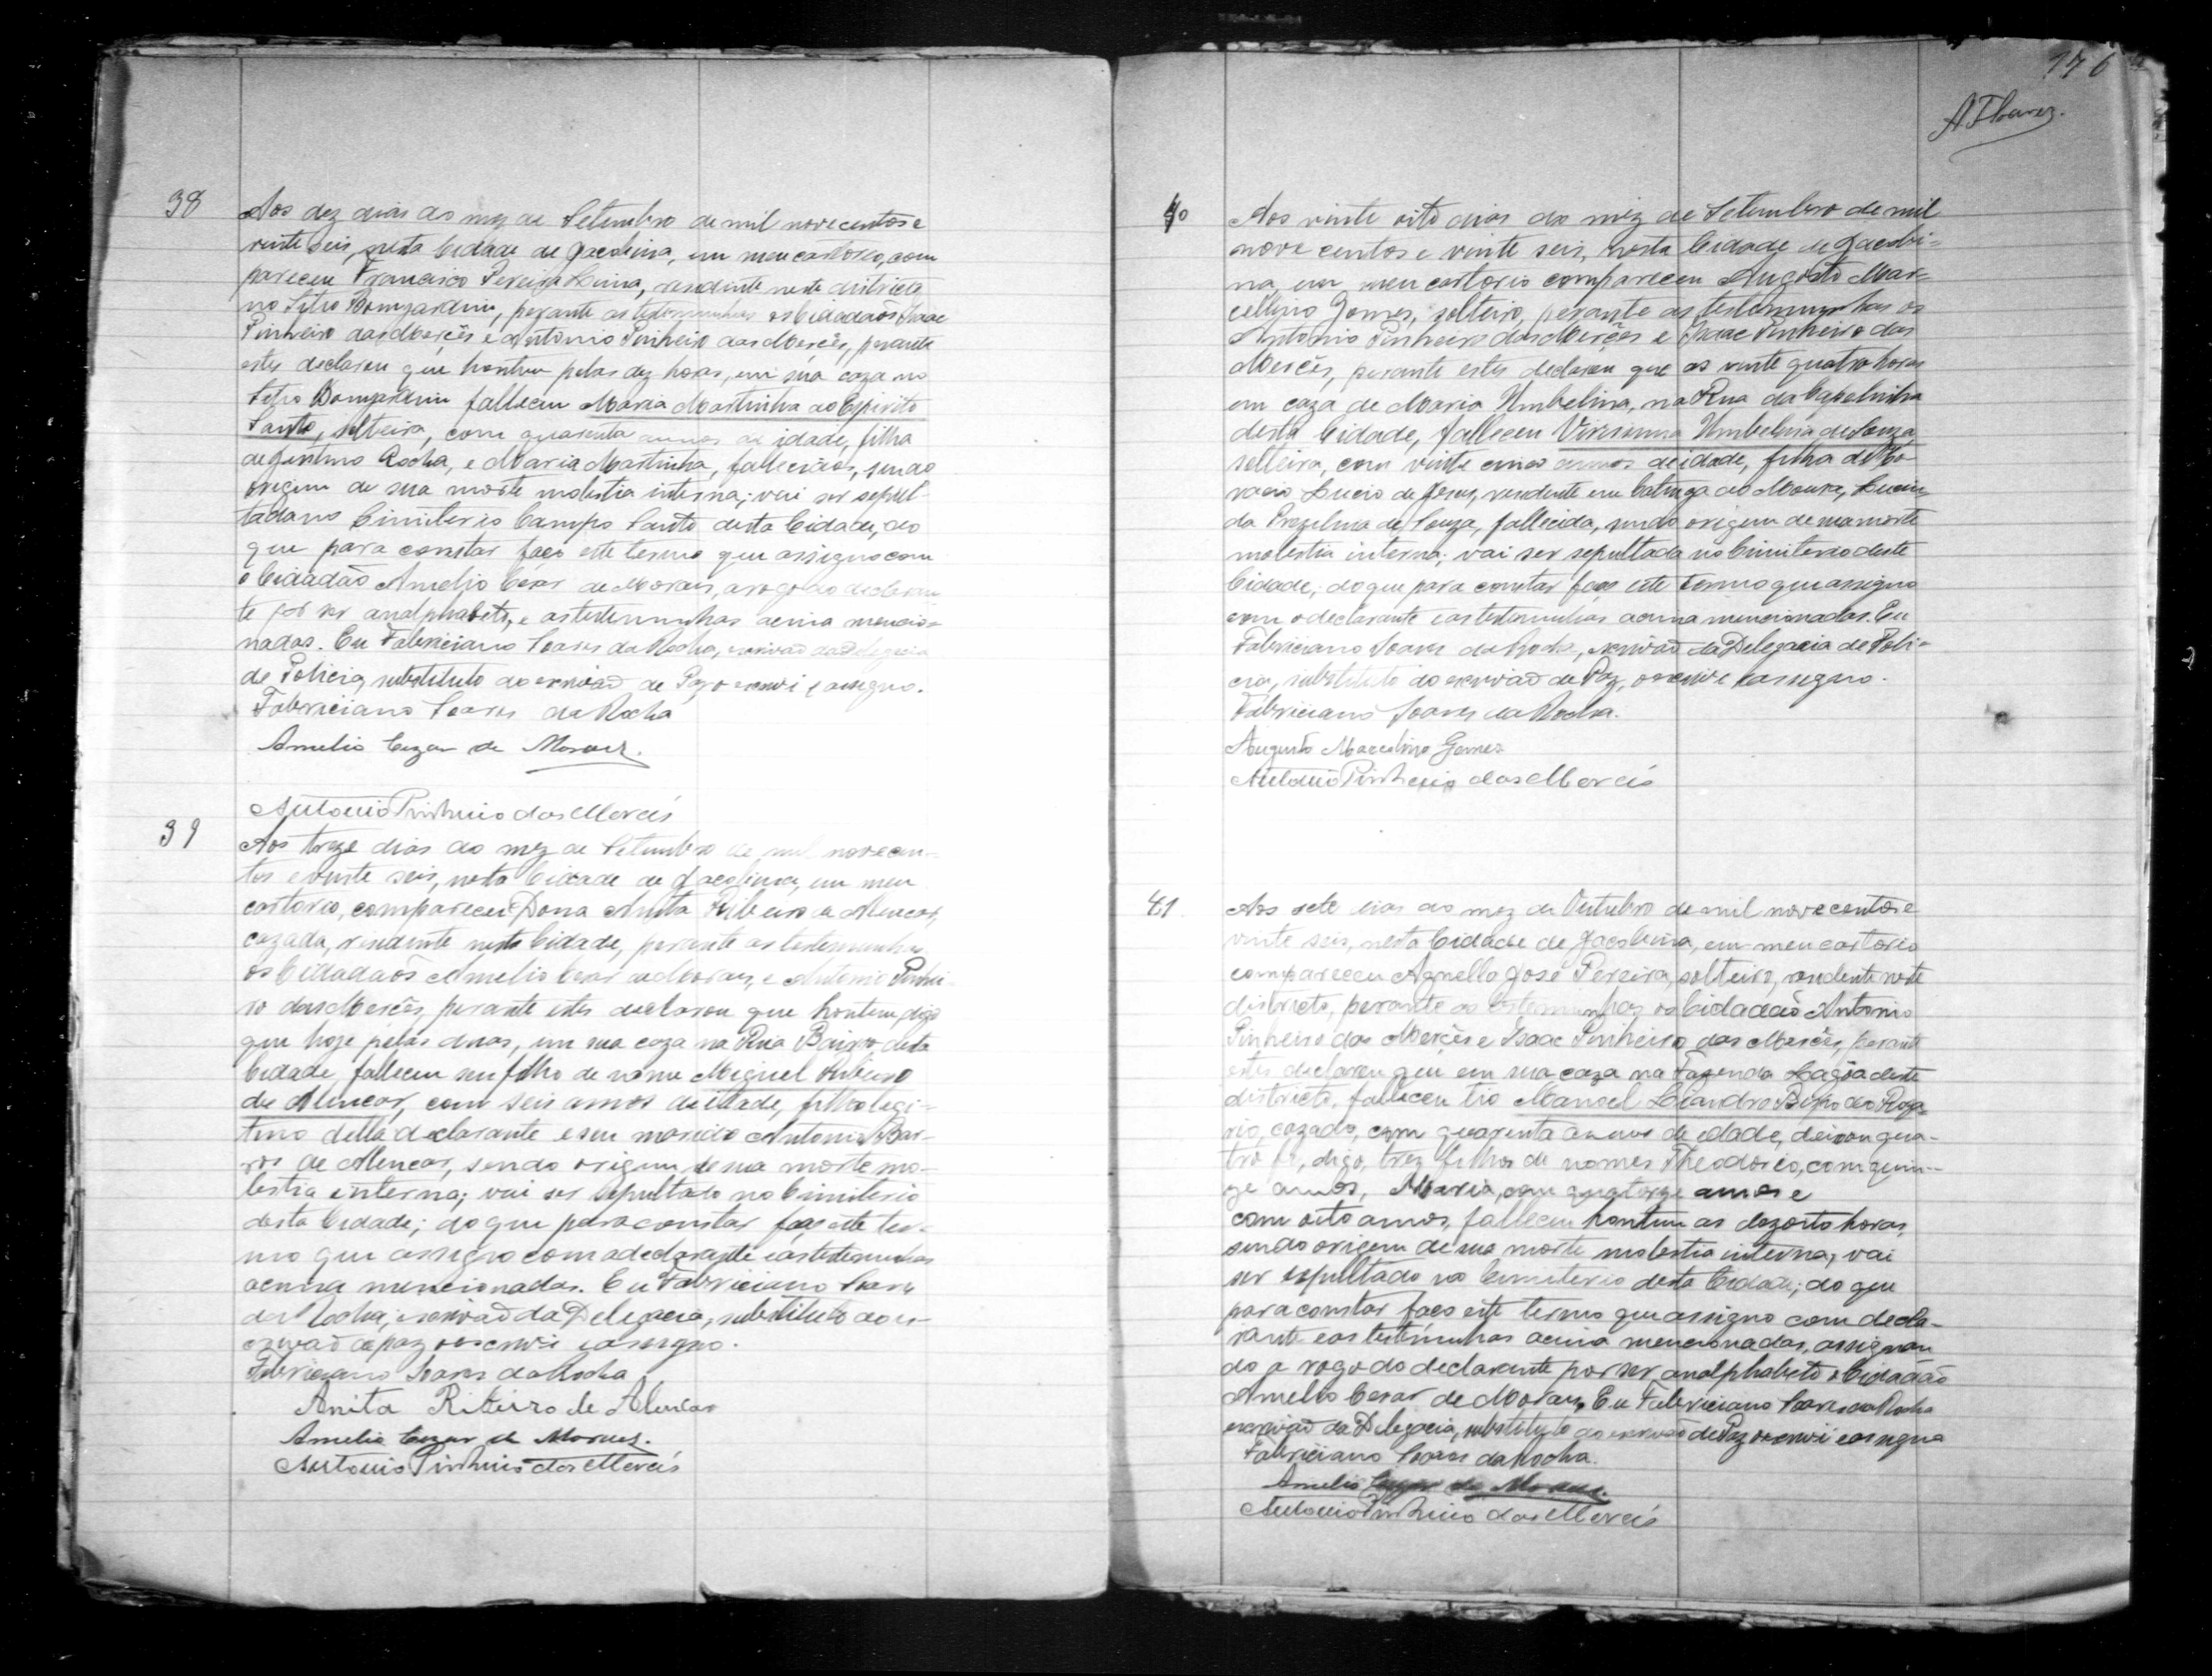 38
Aos dez dias do mez de Setembro de mil novecentos e
vinte seis, nesta Cidade de Jacobina, em meu cartorio, com
pareceu Francisco Pereira Lima, residente neste districto
no Sitio Bomjardim, perante as testemunhas os Cidadaõs Isaac
Pinheiro das Mercês e Antonio Pinheiro das Mercês, perante
estes declarou que hontem pelas dez horas, em sua caza no
Sitio Bomjardim falleceu Maria Martinha do Espirito
Santo, solteira, com quarenta annos de idade, filha
de Rocha, e Maria Martinha, fallecidos, sendo
origem de sua morte molestia interna; vai ser sepul-
tada no Cimiterio Campo Santo desta Cidade, do
que para constar faço este termo que assigno com
o Cidadão Amelio Cesar de Morais, a rogo do declaran
te por ser analphabeto, e as testemunhas acima mencio=
nadas. Eu Fabriciano Soares da Rocha, escrivaõ da Delegacia
de Policia, substituto do escrivaõ de Paz o escrevi e assigno.
Fabriciano Soares da Rocha
Amelio Cezar de Moraes.
Antonio Pinheiro das Mercês
39
Aos treze dias do mez de Setembro de mil novecen-
tos e vinte seis, nesta Cidade de Jacobina, em meu
cartorio, compareceu Dona Anita Ribeiro de Alencar,
cazada, residente nesta Cidade, perante as testemunhas
os Cidadaõs Amelio Cesar de Moraes, e Antonio Pinhei-
ro das Mercês, perante estes declarou que hontem, digo
que hoje pelas duas, em sua caza na Rua Bairro desta
Cidade, falleceu seu filho de nome Miguel Ribeiro
de Alencar, com seis annos de idade, filho legi-
timo della declarante e seu marido Antonio Bar-
ros de Alencar, sendo origem de sua morte mo-
lestia interna; vai ser sepultado no Cimiterio
desta Cidade; do que para constar faço este ter-
mo que assigno com a declarante e as testemunhas
acima mencionadas. Eu Fabriciano Soares
da Rocha, escrivaõ da Delegacia, substituto do es-
crivaõ de paz o escrevi e assigno.
Fabriciano Soares da Rocha
Anita Ribeiro de Alencar
Amelio Cezar de Moraes.
Antonio Pinheiro das Mercês
176
40
Aos vinte oito dias do mez de Setembro de mil
nove centos e vinte seis, nesta Cidade de Jacobi=
na, em meu cartorio compareceu Augosto Mar=
cellino Gomes, solteiro, perante as testemunhas os
Antonio Pinheiro das Mercês e Isaac Pinheiro das
Mercês, perante estes declarou que as vinte quatro horas
em caza de Maria Umbelina, na Rua da Capelinha
desta Cidade, falleceu Umbelina de Souza,
solteira, com vinte cinco annos de idade, filha de Ho-
racio Lucio de Jesus, residente em Catinga do Moura, Lucin
da de Souza, fallecida, sendo origem de sua morte
molestia interna; vai ser sepultada no Cimiterio deste
Cidade; do que para constar faço este termo que assigno
com o declarante e as testemunhas acima mencionadas. Eu
Fabriciano Soares da Rocha, escrivaõ da Delegacia de Poli-
cia, substituto do escrivaõ de Paz, o escrevi e assigno.
Fabriciano Soares da Rocha.
Augusto Marcelino Gomes
Antonio Pinheiro das Mercês
41
Aos sete dias do mez de Outubro de mil nove centos e
vinte seis, nesta Cidade de Jacobina, em meu cartorio
compareceu Agnello José Pereira, solteiro, residente neste
districto, perante as testemunhas os Cidadaõ Antonio
Pinheiro das Mercês e Isaac Pinheiro das Mercês, perante
estes declarou que em sua caza na Fazenda Lagôa deste
districto, falleceu tio Manoel Leandro Bispo do Roza
rio, cazado, com quarenta annos de edade, deixou qua-
tro digo, trez filhos de nomes Theodorio, com quin-
ze annos, Maria, com quatorze annos e
com oito annos, falleceu hontem as dezoito horas,
sendo origem de sua morte molestia interna, vai
ser sepultado no Cimiterio desta Cidade; do que
para constar faço este termo que assigno com decla-
rante e as testemunhas acima mencionadas, assignan
do a rogo do declarante por ser analphabeto o Cidadaõ
Amelio Cesar de Moraes. Eu Fabriciano Soares da Rocha
escrivaõ da Delegacia, substituto do escrivaõ de Paz o escrevi e assigno
Fabriciano Soares da Rocha.
Amelio Cezar de Moraes.
Antonio Pinheiro das Mercês